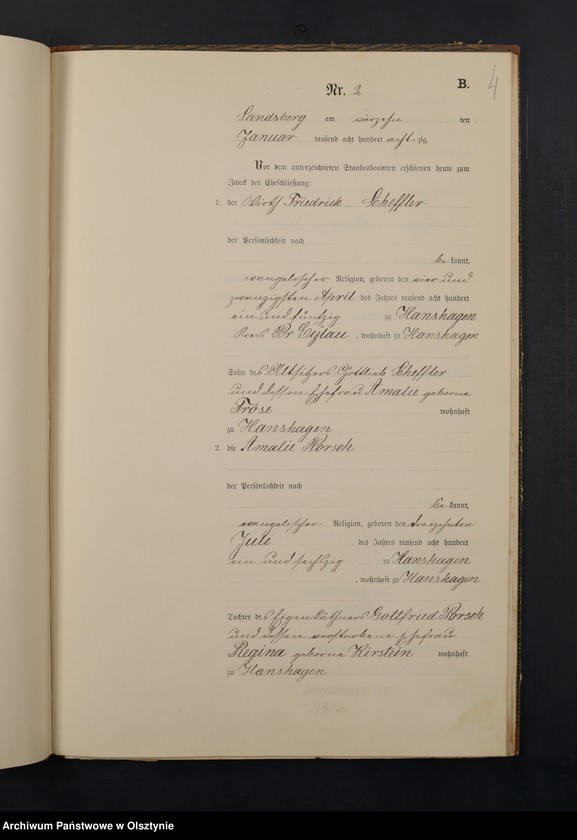 4
Nr. 2 B.
Landsberg am vierzehn ten
Januar tausend acht hundert acht- zig
Vor dem unterzeichneten Standesbeamten erschienen heute zum
Zweck der Eheschließung:
1. der Wirth Friedrich Scheffler
der Persönlichkeit nach
be kannt,
evangelischer Religion, geboren den vier und
zwanzigsten April des Jahres tausend acht hundert
ein und fünfzig zu Hanshagen
Kreis Pr Eylau, wohnhaft zu Hanshagen
Sohn des Altsitzers Gottlieb Scheffler
und dessen Ehefrau Amalie geborne
Fröse wohnhaft
zu Hanshagen
2. die Amalie Rorsch
der Persönlichkeit nach
be kannt,
evangelischer Religion, geboren den dreizehnten
Juli des Jahres tausend acht hundert
ein und sechszig zu Hanshagen
, wohnhaft zu Hanshagen
Tochter des Eigenkäthners Gottfried Rorsch
und dessen verstorbene Ehefrau
Regina geborne Kirstein wohnhaft
zu Hanshagen
Archiwum Państwowe w Olsztynie